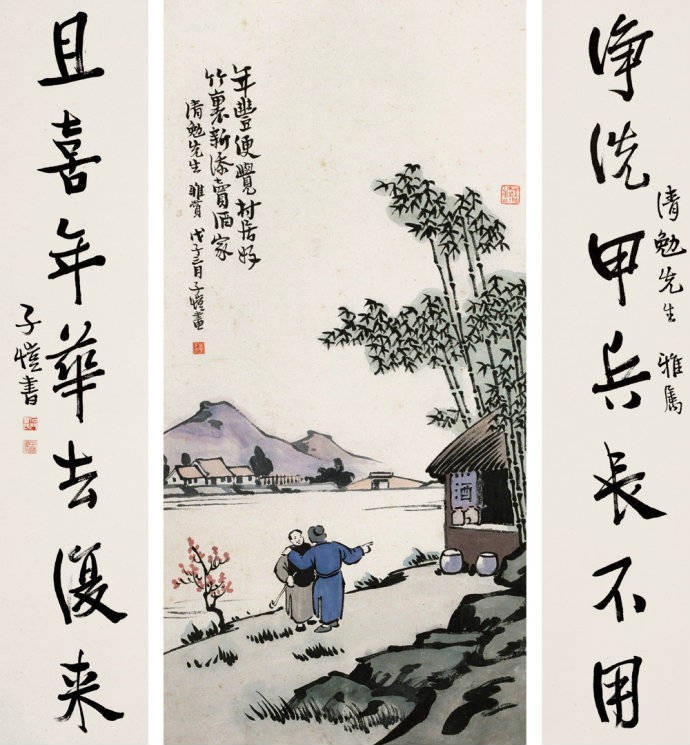 净洗甲兵长不用
清勉先生 雅属
年丰便觉村居好
竹裏新添賣酒家
清勉先生 雅賞 戊子三月子愷畫
酒
且喜年華去復来
子愷書